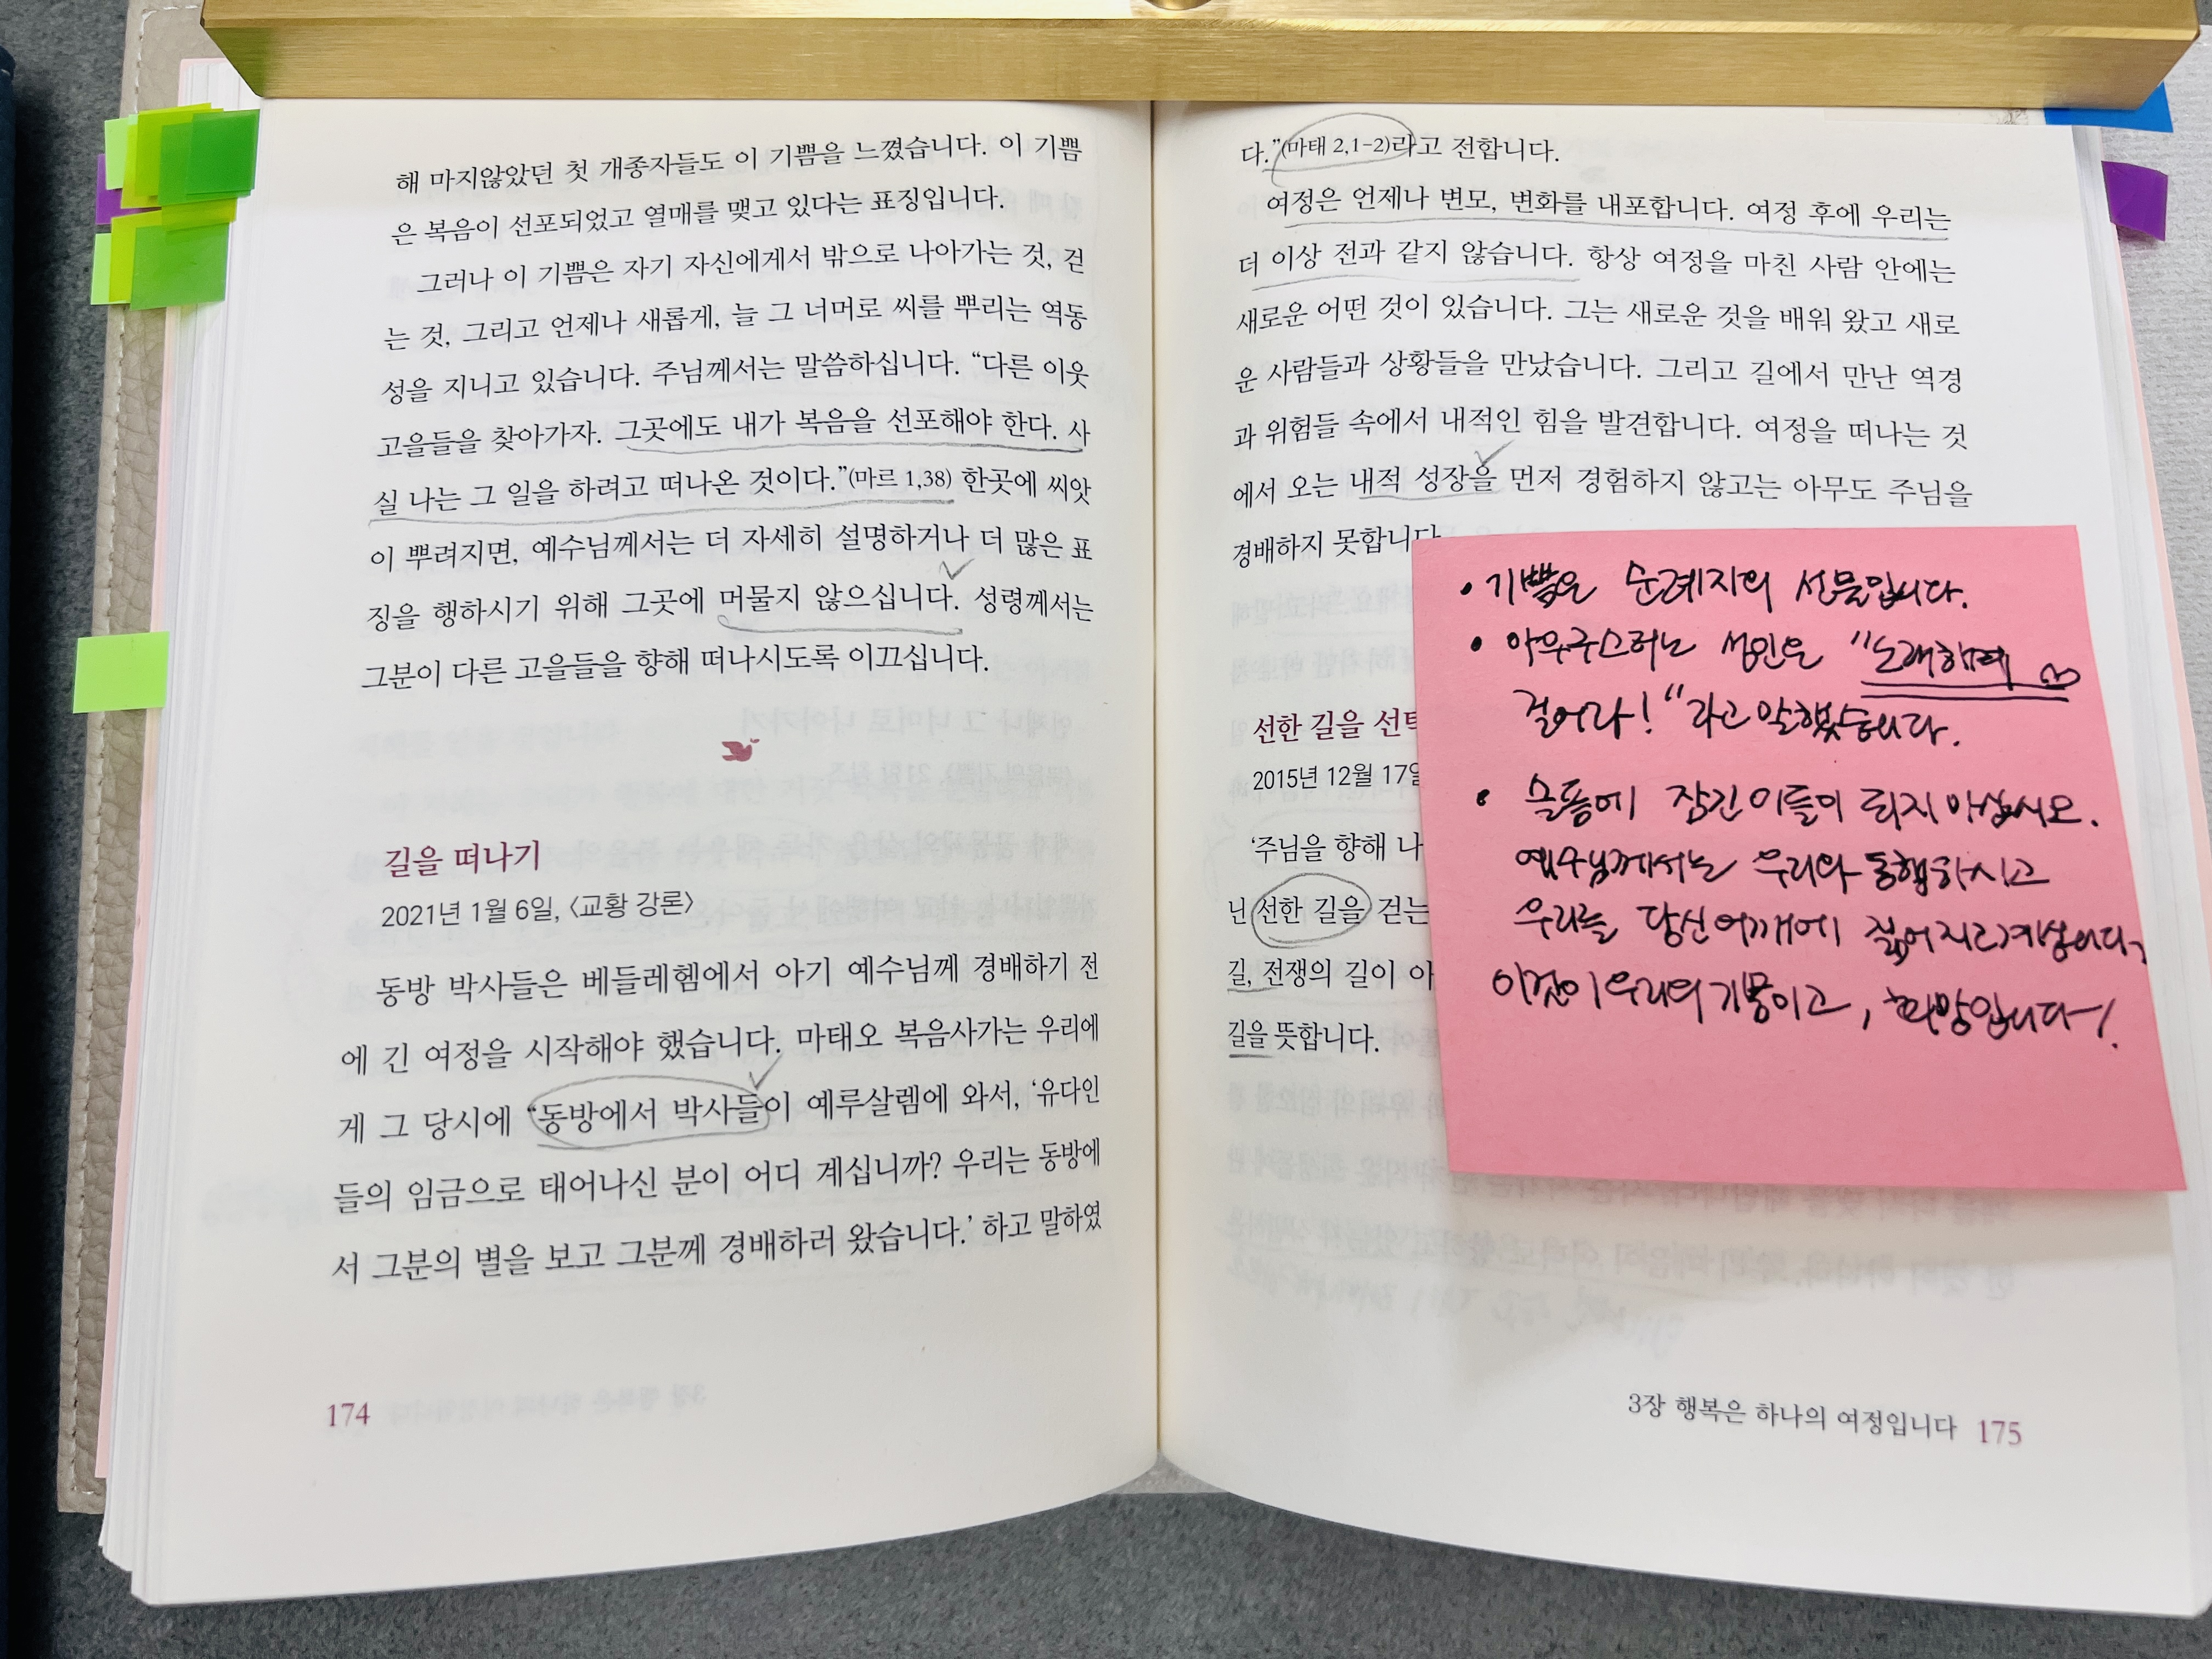 해 마지않았던 첫 개종자들도 이 기쁨을 느꼈습니다. 이 기쁨
은 복음이 선포되었고 열매를 맺고 있다는 표징입니다.
그러나 이 기쁨은 자기 자신에게서 밖으로 나아가는 것, 걷
는 것, 그리고 언제나 새롭게, 늘 그 너머로 씨를 뿌리는 역동
성을 지니고 있습니다. 주님께서는 말씀하십니다. “다른 이웃
고을들을 찾아가자. 그곳에도 내가 복음을 선포해야 한다. 사
실 나는 그 일을 하려고 떠나온 것이다.”(마르 1,38) 한곳에 씨앗
이 뿌려지면, 예수님께서는 더 자세히 설명하거나 더 많은 표
징을 행하시기 위해 그곳에 머물지 않으십니다. 성령께서는
그분이 다른 고을들을 향해 떠나시도록 이끄십니다.
길을 떠나기
2021년 1월 6일, 〈교황 강론〉
동방 박사들은 베들레헴에서 아기 예수님께 경배하기 전
에 긴 여정을 시작해야 했습니다. 마태오 복음사가는 우리에
게 그 당시에 “동방에서 박사들이 예루살렘에 와서, ‘유다인
들의 임금으로 태어나신 분이 어디 계십니까? 우리는 동방에
서 그분의 별을 보고 그분께 경배하러 왔습니다.’ 하고 말하였
174
다.”(마태 2,1-2)라고 전합니다.
여정은 언제나 변모, 변화를 내포합니다. 여정 후에 우리는
더 이상 전과 같지 않습니다. 항상 여정을 마친 사람 안에는
새로운 어떤 것이 있습니다. 그는 새로운 것을 배워 왔고 새로
운 사람들과 상황들을 만났습니다. 그리고 길에서 만난 역경
과 위험들 속에서 내적인 힘을 발견합니다. 여정을 떠나는 것
에서 오는 내적 성장을 먼저 경험하지 않고는 아무도 주님을
경배하지 못합니다
선한 길을 선택
2015년 12월 17일
‘주님을 향해 나
닌 선한 길을 걷는
길, 전쟁의 길이 아
길을 뜻합니다.
• 기쁨은 순례자의 선물입니다.
• 아우구스티노 성인은 "노래하며
걸어라!"라고 말했습니다.
• 슬픔에 잠긴 이들이 되지 마십시오.
예수님께서는 우리와 동행하시고
우리를 당신 어깨에 짊어지고 계십니다.
이것이 우리의 기쁨이고, 희망입니다!
3장 행복은 하나의 여정입니다 175